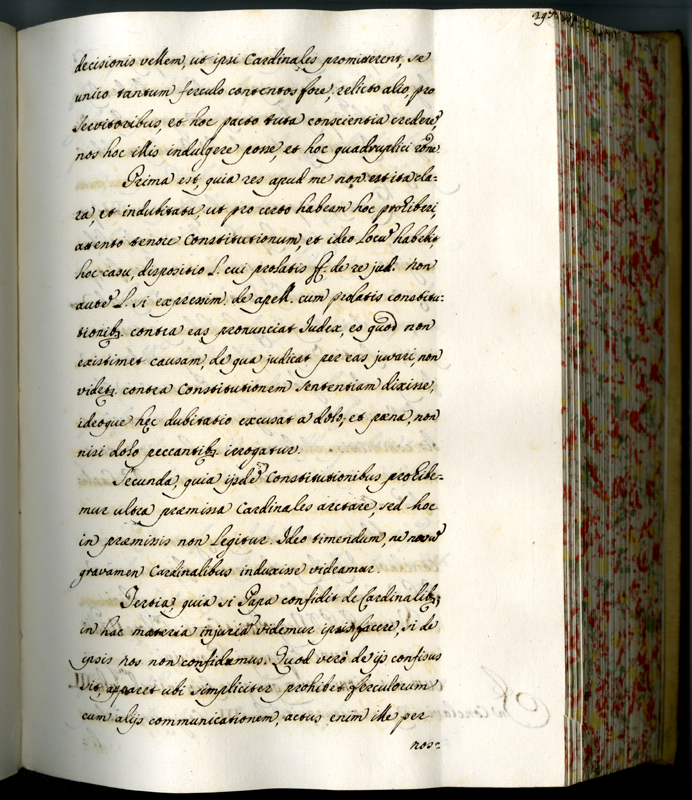 decisionis vellem, ut ipsi Cardinales promitterent, se
unico tantum ferculo contentos fore, relicto alio, pro
Servitoribus, et hoc pacto tuta conscientia crederẽ,
nos hoc illis indulgere posse, et hoc quadruplici rõne.
Prima est, quia res apud me non est ita cla-
ra, et indubitata, ut pro certo habeam hoc prohiberi,
attento tenore Constitutionum, et ideo Locũ habebit
hoc casu, dispositio L. cui prolatis ff. de re jud. non
autẽ L. si expressim. de apell. cum prolatis constitu-
tionibꝫ contra eas pronunciat Iudex, eo quod non
existimet causam, de qua judicat per eas juvari, non
videtꝫ contra Constitutionem sententiam dixisse,
ideoque hęc dubitatio excusat a dolo, et pœna, non
nisi dolo peccantibꝫ irrogatur.
Secunda, quia ijsdẽ Constitutionibus prohibe-
mur ultra præmissa Cardinales arctare, sed hoc
in præmissis non Legitur. Ideo timendum, ne novũ
gravamen Cardinalibus induxisse videamur.
Tertia, quia si Papa confidit de Cardinalibꝫ
in hac materia injuriã videmur ipsis facere, si de
ipsis nos non confidamus. Quod verò de ijs confisus
sit, apparet ubi simpliciter prohibet ferculorum
cum alijs communicationem, actus enim ille per
nos-